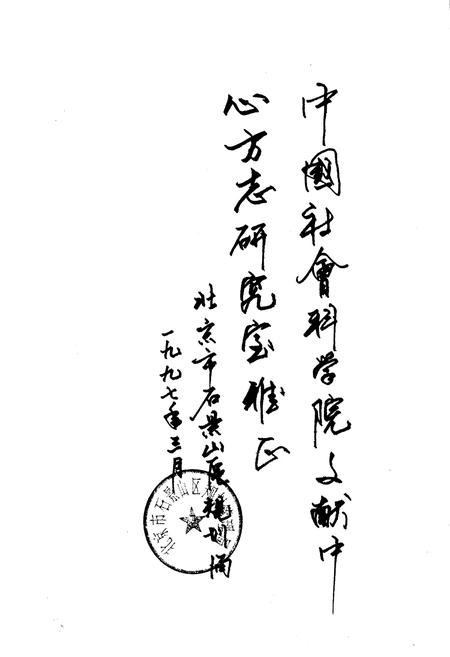 中國社會科学院文献中
心方志研究室雅正
北京市石景山区規划局
一九九七年三月
北京市石景山区